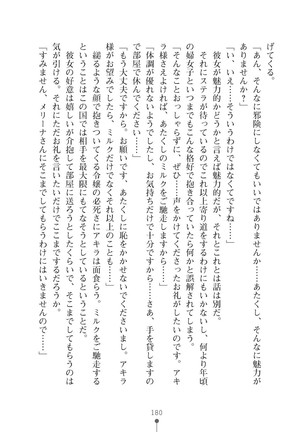 げてくる。
「あん、そんなに邪険にしなくてもいいではありませんか……。あたくし、そんなに魅力
ありませんか？」
「い、いえ……そういうわけではなくてですね……」
彼女が魅力的かどうかと言えば魅力的だが、それとこれとは話は別だ。
それにステラが待っているのでこれ以上寄り道をするわけにもいかないし、何より年頃
の婦女子といつまでもこんな格好で抱き合っていたら何かと誤解されてしまう。
「そんなことおっしゃらずに、ぜひ……声をかけてくださったお礼がしたいんです。アキ
ラ様さえよければ、あたくしのミルクをご馳走しますから……」
「体調が優れないようでしたし、お気持ちだけで十分ですから……さあ、手を貸しますの
で部屋で休んでください……」
「もう大丈夫ですから、お願いです、あたくしに恥をかかせないでくださいまし。アキラ
様がお望みでしたら、ミルクだけでなくそれ以上のことも……」
縋るような顔で抱きついてくる令嬢の必死さにアキラは面食らう。ミルクをご馳走する
ということはこの国では相手を最大限にもてなそうとしているということだ。
彼女の好意は嬉しいが介抱して部屋に送ろうとしたくらいで、そこまでしてもらうのは
気が引ける。それにただお礼を言いたいだけでここまでするだろうか。
「すみません、メリーナさんにそこまでしてもらうわけにはいきませんので……」
180